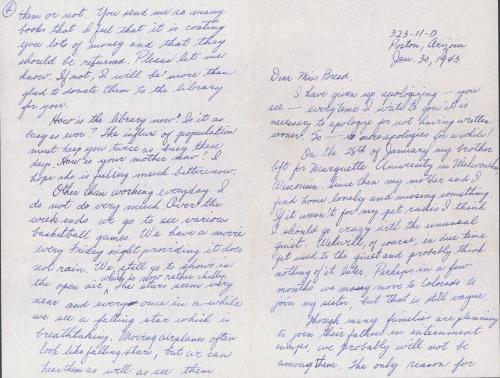 4
them or not. You send me so many
books that I feel that it is costing
you lots of money and that they
should be returned. Please let me
know. If not, I will be more than
glad to donate them to the library
for you.
How is the library now? Is it as
busy as ever? The influx of population
must keep you twice as busy these
days. How is your mother now? I
hope she is feeling much better now.
Other than working everyday I
do not do very much. Over the
week ends we go to see various
basketball games. We have a movie
every Friday night providing it does
not rain. We still go to shows in
the open air, which is now rather chilly. The stars seem very
near and every once in a while
we see a falling star which is
breathtaking. Moving airplanes often
look like falling stars, but we can
hear them as well as see them.
323-11-D
Poston, Arizona
Jan. 30, 1943
Dear Miss Breed,
I have given up apologizing - you
see - everytime I write to you it is
necessary to apologize for not having written
sooner. So - no more apologies for a while!
On the 26th of January my brother
left for Marquette University in Milwaukee,
Wisconsin. Since then my mother and I
find home lonely and missing something.
If it wasn't for my pet radio I think
I should go crazy with the unusual
quiet. We will, of course, in due time
get used to the quiet and probably think
nothing of it later. Perhaps in a few
months we may move to Colorado to
join my sister, but that is still vague.
Though many families are planning
to join their fathers in internment
camps, we probably will not be
among them. The only reason for